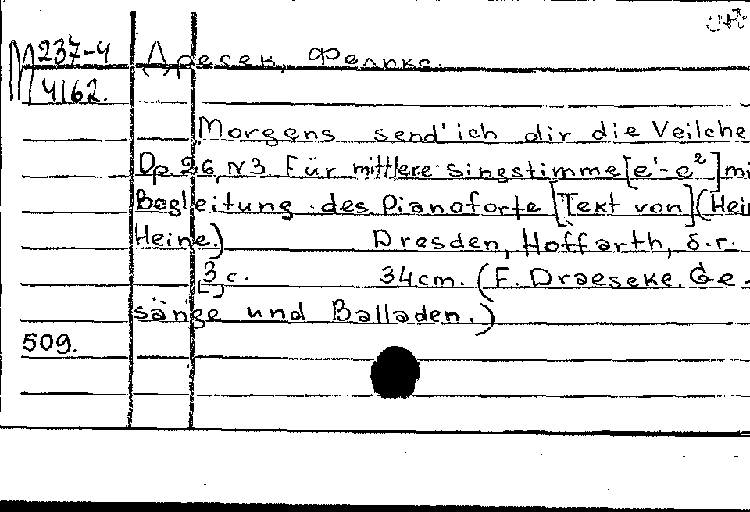 М 237-4 Дресек, Феликс.
4162.
Morgens send'ich dir die Veilche
Op 26, N3. Für mittlere singstimme [e¹-e²] mi
Begleitung des Pianoforte [Text von] (Hein
Heine.) Dresden, Hoffarth, б.г.
[3] c. 34cm. (F. Draeseke. Ge-
sänge und Balladen.)
509.